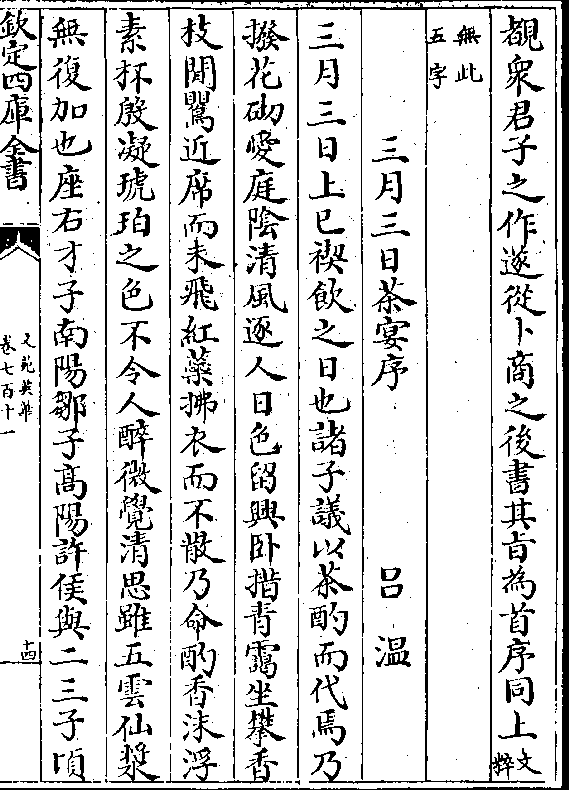 覩衆君子之作遂從卜商之後書其旨為首序同上文粹
無此五字
三月三日茶宴序　吕温
三月三日上巳禊飲之日也諸子議以茶酌而代焉乃
撥花砌愛庭陰清風逐人日色留興卧措青靄坐攀香
枝閒鸎近席而未飛紅蘂拂衣而不散乃命酌香沫浮
素杯殷凝琥珀之色不令人醉微覺清思雖五雲仙漿
無復加也座右才子南陽鄒子高陽許侯與二三子頃
欽定四庫全書
文苑英華
卷七百十一
十四